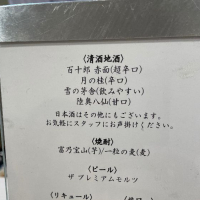 〈清酒地酒〉
百十郎 赤面(超辛口)
月の桂(辛口)
雪の茅舎(飲みやすい)
陸奥八仙(甘口)
日本酒はその他にもございます。
お気軽にスタッフにお声掛けください。
〈焼酎〉
富乃宝山(芋)/一粒の麦(麦)
〈ビール〉
ザ プレミアムモルツ
〈リキュール〉